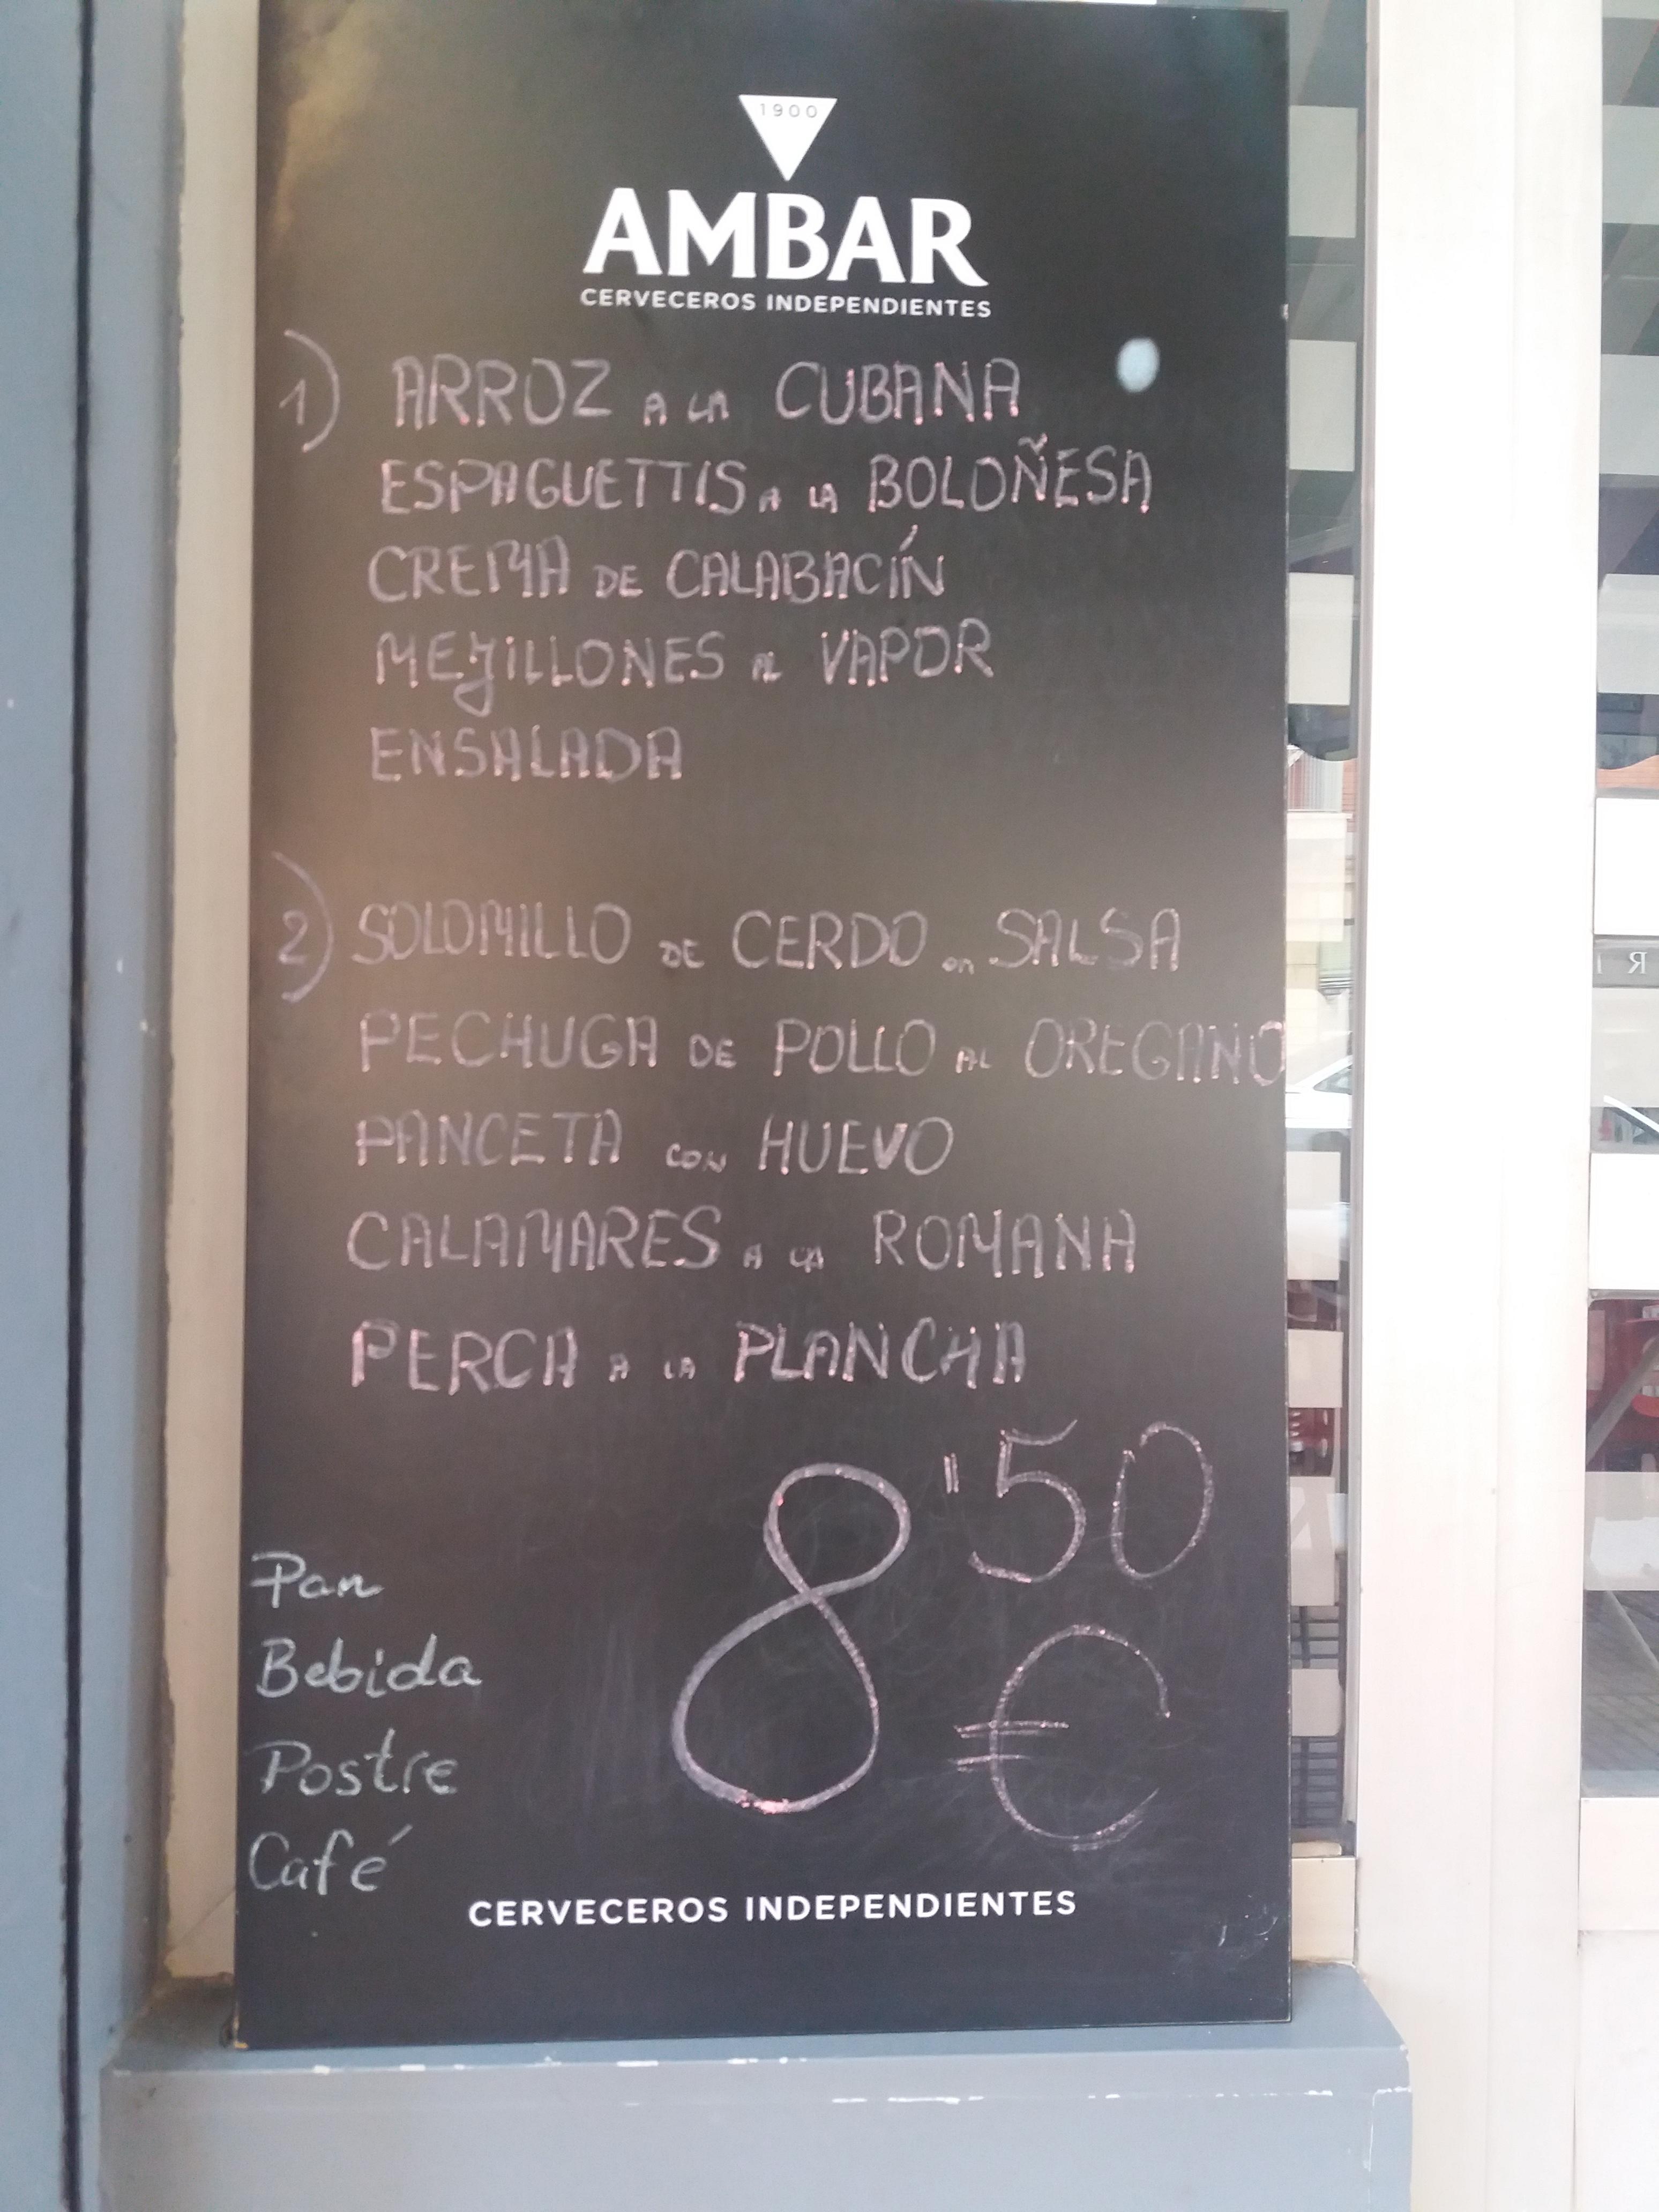 1900
AMBAR
CERVECEROS INDEPENDIENTES
1) ARROZ A LA CUBANA
ESPAGUETTIS A LA BOLOÑESA
CREMA DE CALABACÍN
MEJILLONES AL VAPOR
ENSALADA
2) SOLOMILLO DE CERDO en SALSA
PECHUGA DE POLLO AL OREGANO
PANCETA CON HUEVO
CALAMARES A LA ROMANA
PERCA A LA PLANCHA
8"50
€
Pan
Bebida
Postre
Café
CERVECEROS INDEPENDIENTES